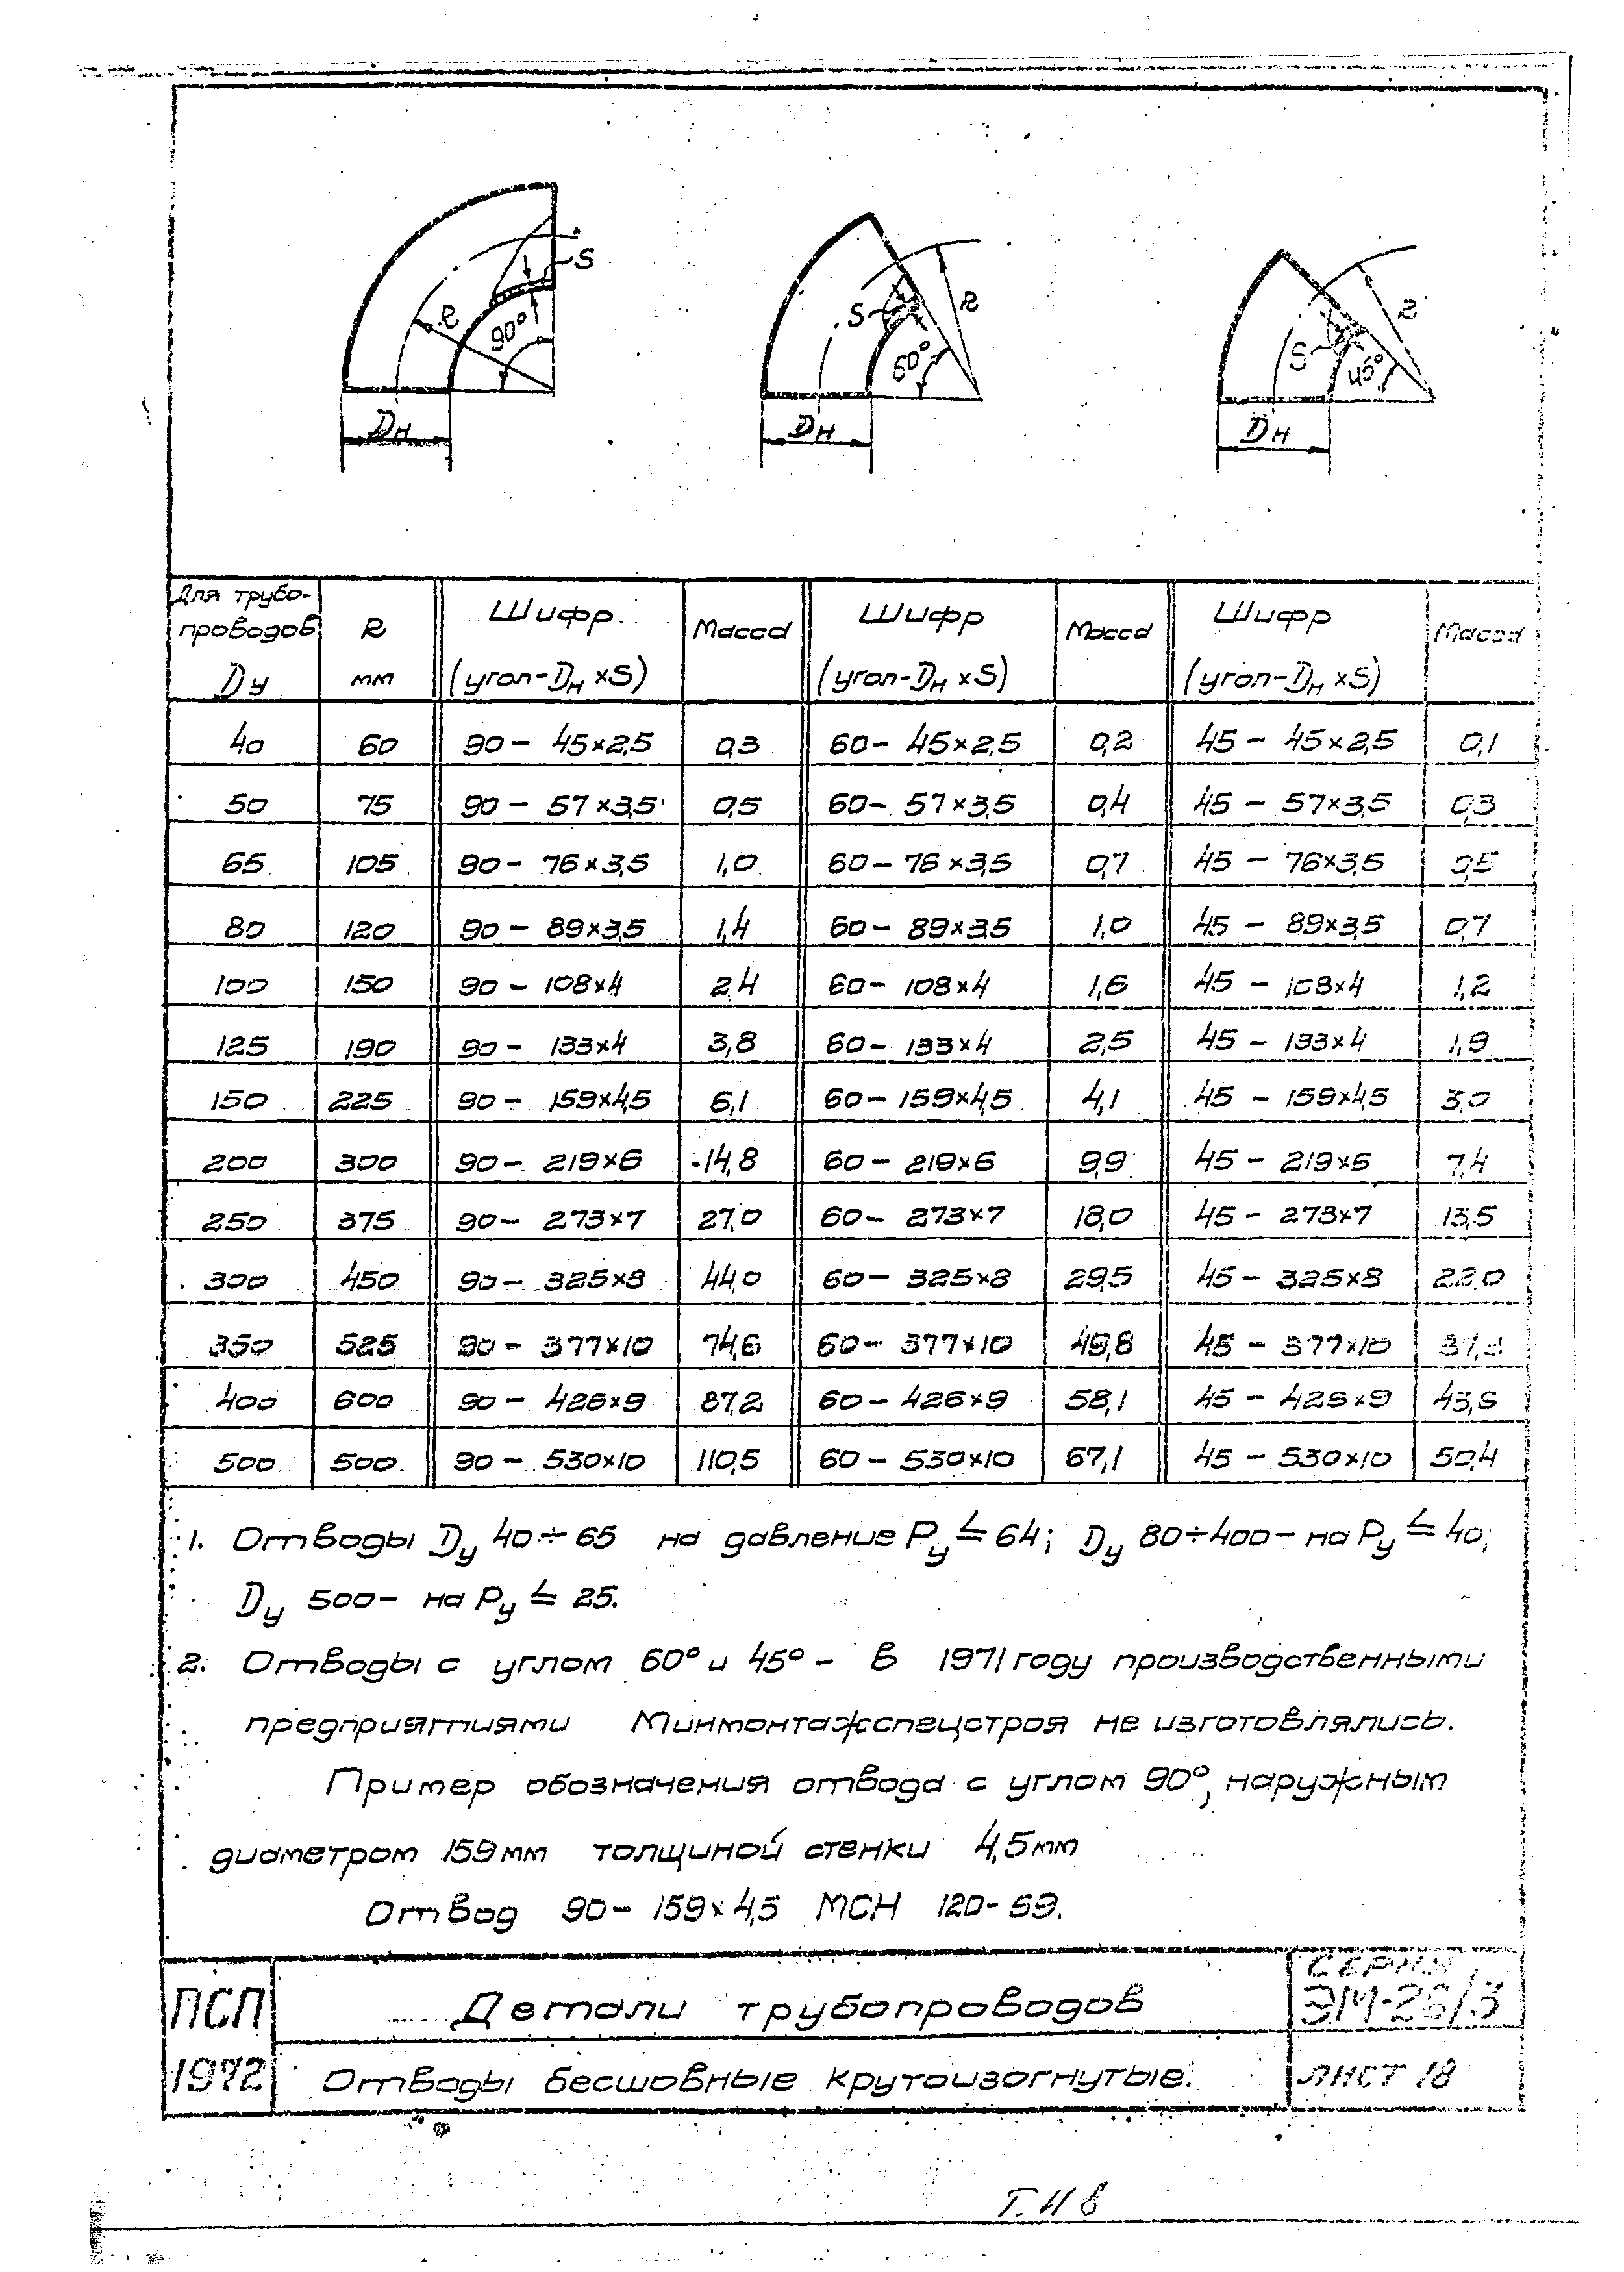 S
R
90°
Dн
S
R
60°
Dн
S
R
45°
Dн
Для трубо-
проводов
Ду
R
мм
Шифр
(угол-Dн×S)
Масса
Шифр
(угол-Dн×S)
Масса
Шифр
(угол-Dн×S)
Масса
40 60 90- 45×2,5 0,3 60- 45×2,5 0,2 45- 45×2,5 0,1
50 75 90- 57×3,5 0,5 60- 57×3,5 0,4 45- 57×3,5 0,3
65 105 90- 76×3,5 1,0 60- 76×3,5 0,7 45- 76×3,5 0,5
80 120 90- 89×3,5 1,4 60- 89×3,5 1,0 45- 89×3,5 0,7
100 150 90- 108×4 2,4 60- 108×4 1,6 45- 108×4 1,2
125 190 90- 133×4 3,8 60- 133×4 2,5 45- 133×4 1,9
150 225 90- 159×4,5 6,1 60- 159×4,5 4,1 45- 159×4,5 3,0
200 300 90- 219×6 14,8 60- 219×6 9,9 45- 219×6 7,4
250 375 90- 273×7 27,0 60- 273×7 18,0 45- 273×7 13,5
300 450 90- 325×8 44,0 60- 325×8 29,5 45- 325×8 22,0
350 525 90- 377×10 74,6 60- 377×10 49,8 45- 377×10
400 600 90- 426×9 87,2 60- 426×9 58,1 45- 426×9 43,6
500 500 90- 530×10 110,5 60- 530×10 67,1 45- 530×10 50,4
1. Отводы Ду 40÷65 на давление Ру ≤ 64; Ду 80÷400- на Ру ≤ 40;
Ду 500- на Ру ≤ 25.
2. Отводы с углом 60° и 45° - в 1971 году производственными
предприятиями Минмонтажспецстроя не изготовлялись.
Пример обозначения отвода с углом 90°, наружным
диаметром 159мм толщиной стенки 4,5мм
Отвод 90- 159×4,5 МСН 120-69.
ПСП
1972
Детали трубопроводов
Отводы бесшовные крутоизогнутые.
СЕРИЯ
ЭМ-26/3
ЛИСТ 18